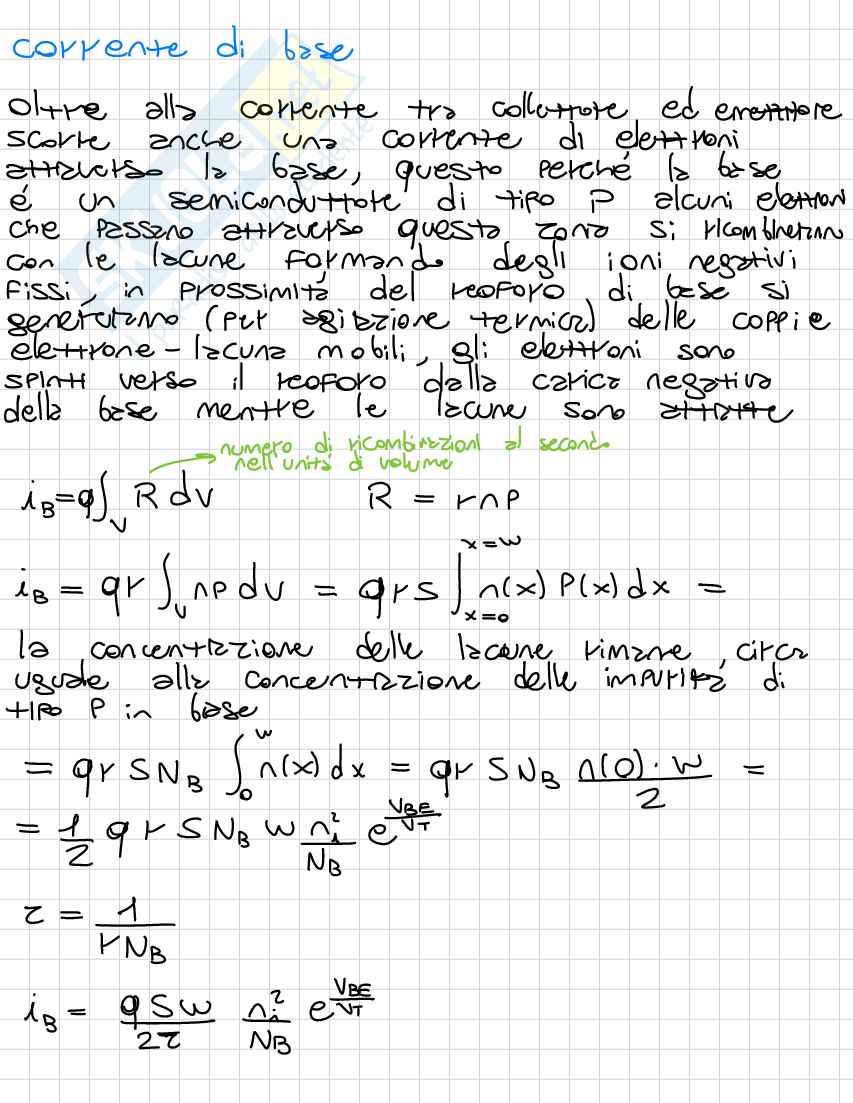 corrente di base
Oltre alla corrente tra collettore ed emettitore
scorre anche una corrente di elettroni
attraverso la base, questo perché la base
é un semiconduttore di tipo P alcuni elettroni
che passano attraverso questa zona si ricombinerano
con le lacune formando degli ioni negativi
fissi, in prossimità del reoforo di base si
generatanno (per agitazione termica) delle coppie
elettrone-lacuna mobili, gli elettroni sono
spinti verso il reoforo dalla carica negativa
della base mentre le lacune sono attratte
numero di ricombinazioni al secondo
nell'unità di volume
i_B = q ∫_V R dv R = rnp
i_B = qr ∫_V np dv = qrs ∫_{x=0}^{x=w} n(x) P(x) dx =
la concentrazione delle lacune rimane, circa
uguale alla concentrazione delle impurità di
tipo P in base
= qr S N_B ∫_0^w n(x) dx = qr S N_B n(0)·w/2 =
= 1/2 q r S N_B w n_i^2/N_B e^{V_BE/V_T}
τ = 1/(r N_B)
i_B = qSw/2τ n_i^2/N_B e^{V_BE/V_T}